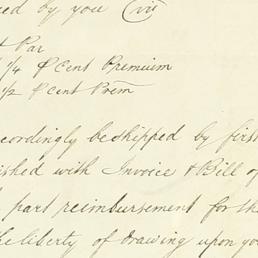 ed by you Viz
t Par
1/4 ⅌ Cent Premuim
1/2 ⅌ Cent Prem
cordingly be shipped by firs
ished with Invoice & Bill of
part reimbursement for th
he liberty of drawing upon yo